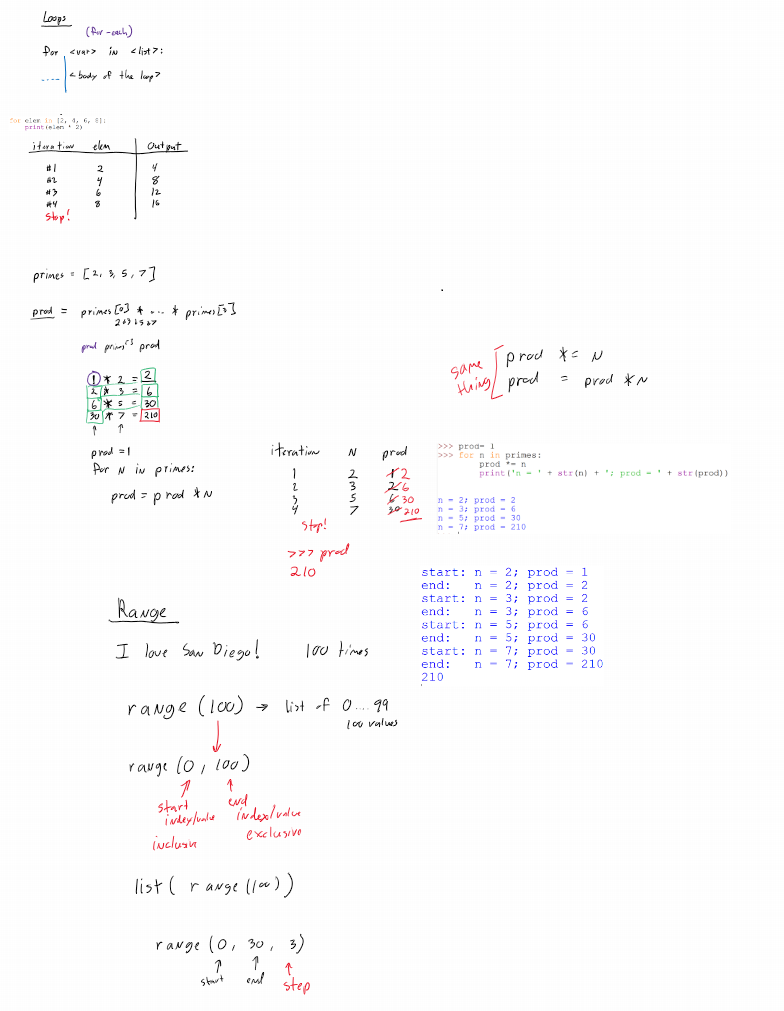 Loops
(for-each)
for <var> in <list>:
<body of the loop>
for elem in [2, 4, 6, 8]:
print(elem * 2)
iteration elem output
#1 2 4
#2 4 8
#3 6 12
#4 8 16
Stop!
primes = [2, 3, 5, 7]
prod = primes[0] * ... * primes[3]
prod primes prod
1 * 2 = 2
2 * 3 = 6
6 * 5 = 30
30 * 7 = 210
same thing
prod *= N
prod = prod * N
prod = 1
for N in primes:
prod = prod * N
iteration N prod
1 2 1 2
2 3 2 6
3 5 6 30
4 7 30 210
Stop!
>>> prod
210
>>> prod= 1
>>> for n in primes:
prod *= n
print('n = ' + str(n) + '; prod = ' + str(prod))
n = 2; prod = 2
n = 3; prod = 6
n = 5; prod = 30
n = 7; prod = 210
start: n = 2; prod = 1
end: n = 2; prod = 2
start: n = 3; prod = 2
end: n = 3; prod = 6
start: n = 5; prod = 6
end: n = 5; prod = 30
start: n = 7; prod = 30
end: n = 7; prod = 210
210
Range
I love San Diego! 100 times
range (100) → list of 0 .... 99
100 values
range (0, 100)
start end
index/value index/value
inclusive exclusive
list( range(100))
range (0, 30, 3)
start end step